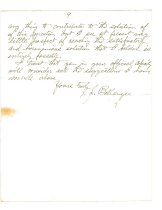 any thing to contribute to the solution of
of this question but I see at present very
little prospect of reaching the satisfactory
and harmonious solution that I should so
I trust that you in your official capacity
will consider well the suggestions I have
made above.
Yours truly